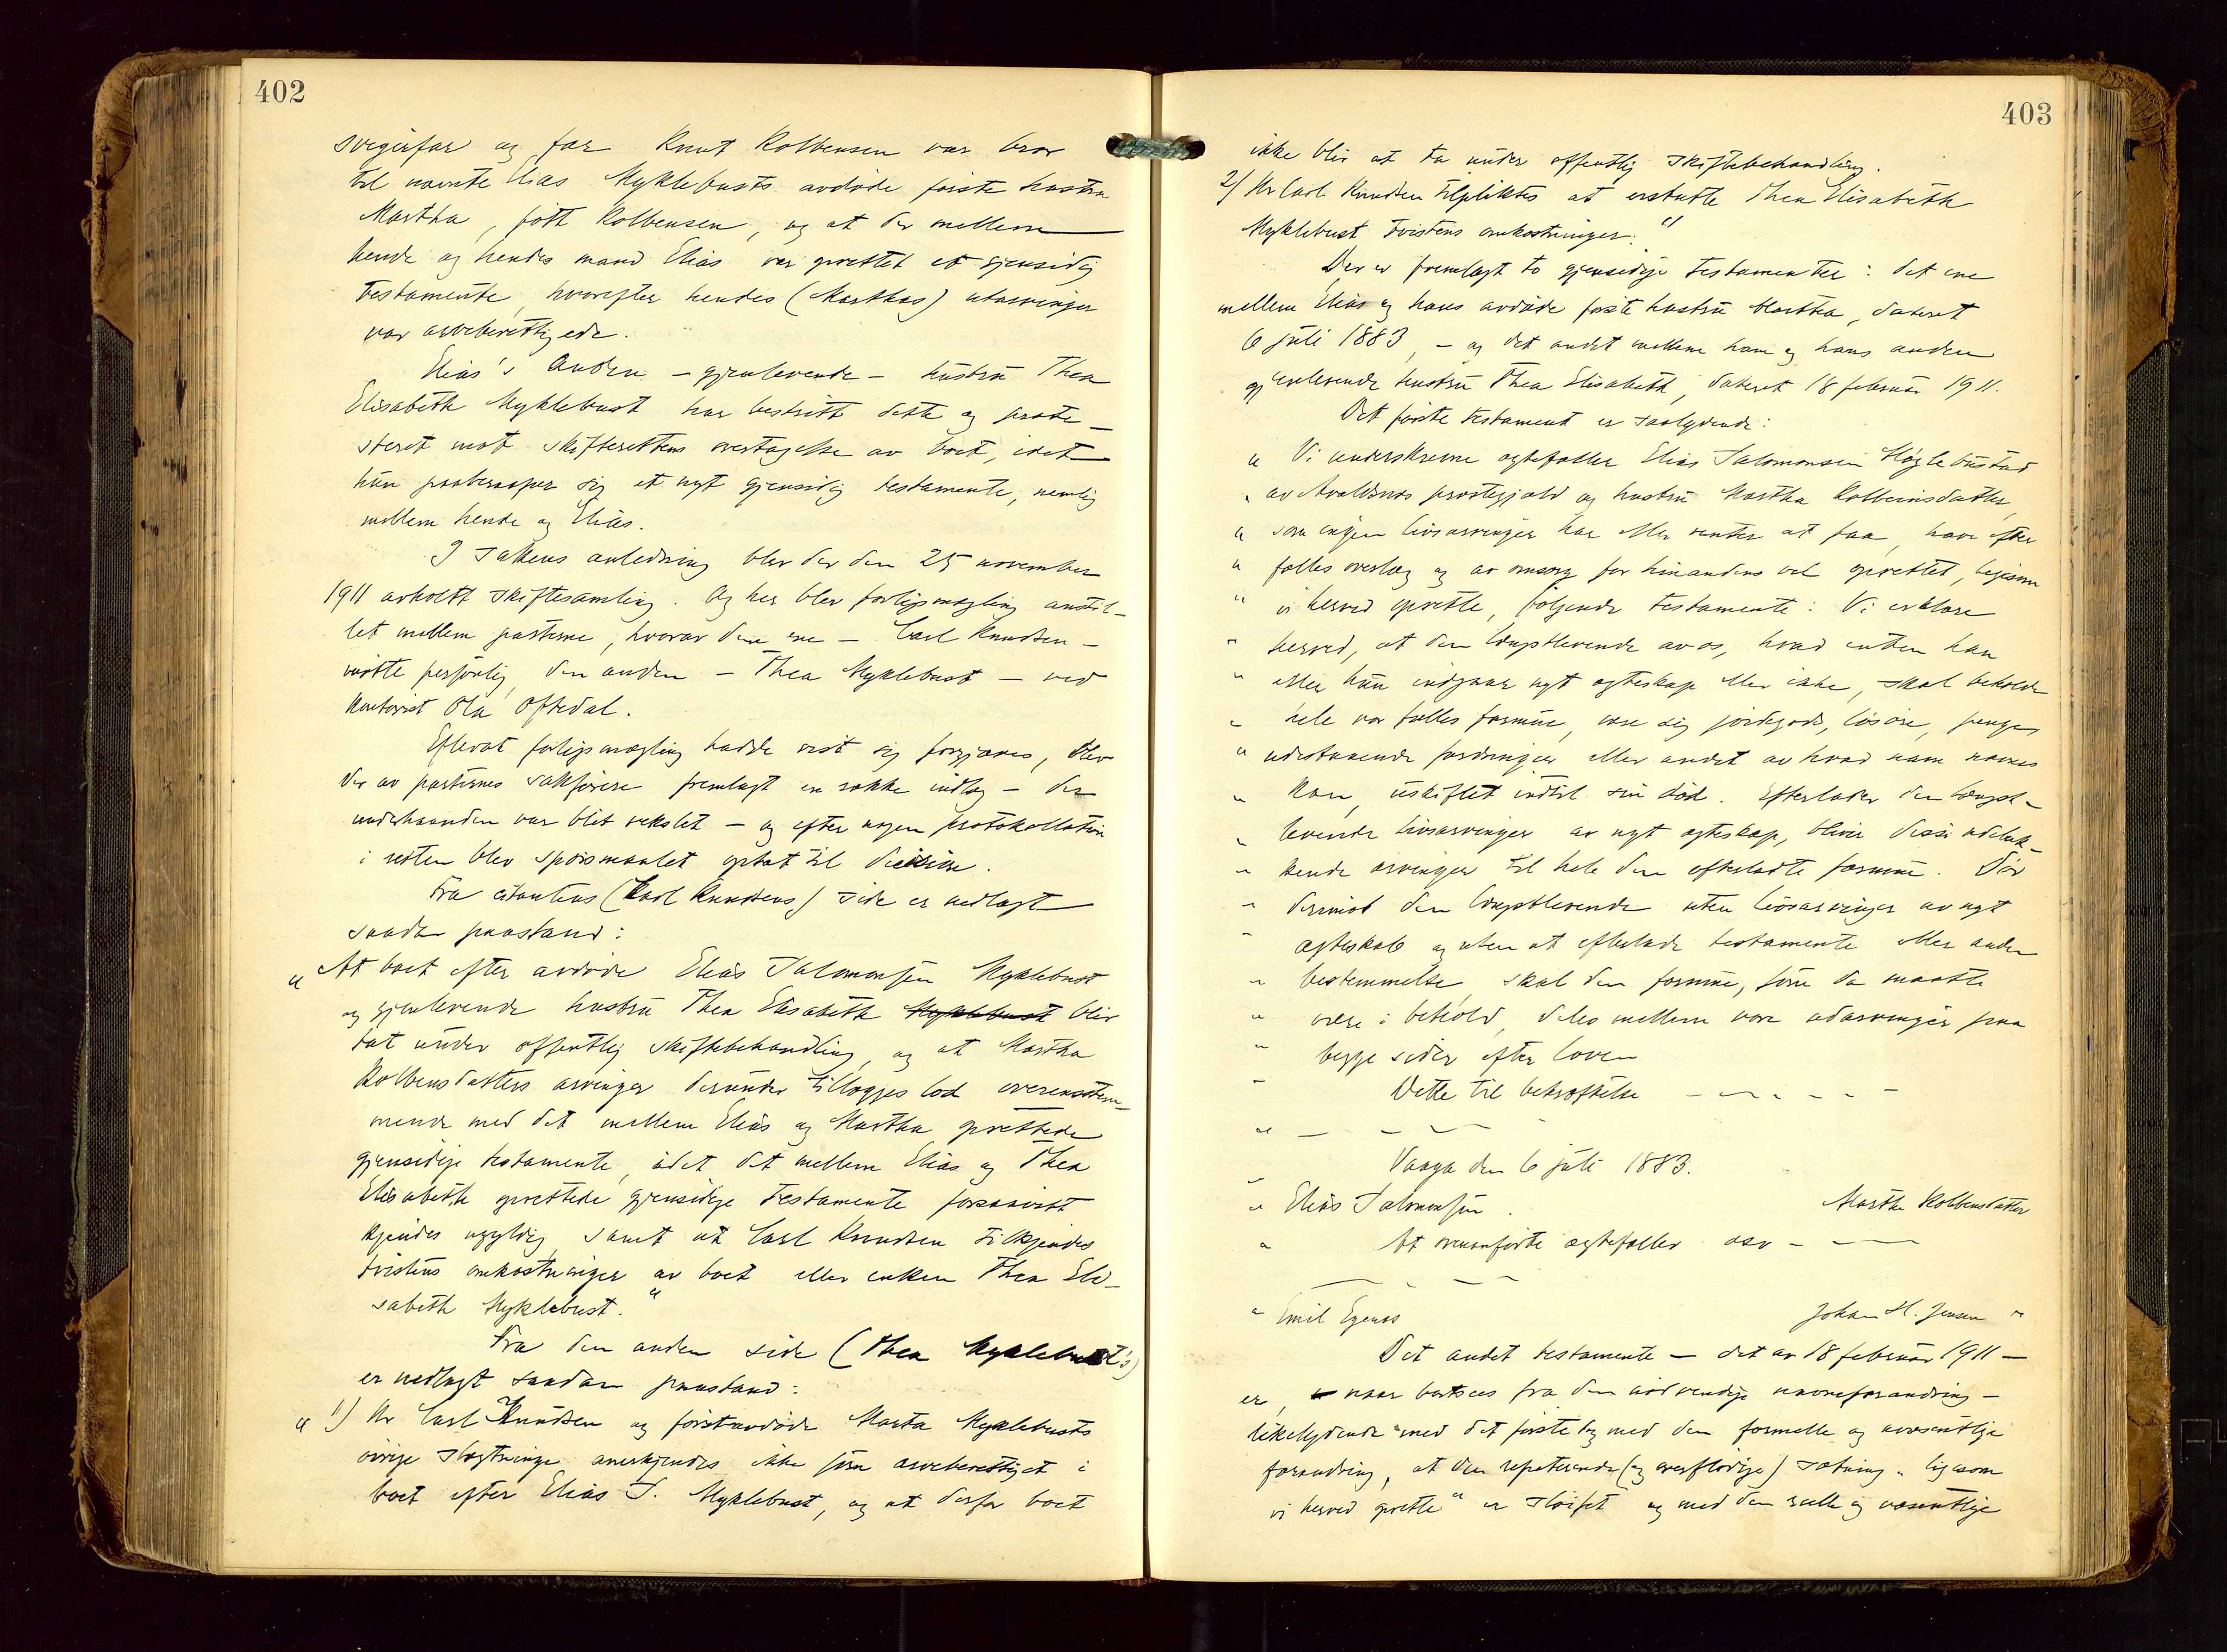 402
svigerfar og far Knut Kolbensen var bror
til nævnte Elias Myklebusts avdøde første hustru
Martha, født Kolbensen, og at der mellem
hende og hendes mand Elias var oprettet et gjensidig
testamente, hvorefter hendes (Marthas) utarvinger
var arveberettigede.
Elias's anden - gjenlevende - hustru Thea
Elisabeth Myklebust har bestridt dette og prote-
steret mot skifterettens overtagelse av boet, idet
hun paaberaaper sig et nyt gjensidig testamente, nemlig
mellem hende og Elias.
I sakens anledning blev der den 25 november
1911 avholdt skiftesamling. Og her blev forligsmægling anstil-
let mellem parterne, hvorav den ene - Carl Knudsen -
møtte personlig, den anden - Thea Myklebust - ved
kontorist Ola Oftedal.
Efterat forligsmægling hadde vist sig forgjæves, blev
der av parternes sakførere fremlagt en række indlæg - der
underhaanden var blit vekslet - og efter nogen protokollation
i retten blev spørsmaalet optat til decision.
Fra citantens (Carl Knudsens) side er nedlagt
saadan paastand:
„ At boet efter avdøde Elias Salomonsen Myklebust
og gjenlevende hustru Thea Elisabeth Myklebust blir
tat under offentlig skiftebehandling, og at Martha
Kolbensdatters arvinger derunder tillægges lod overensstem-
mende med det mellem Elias og Martha oprettede
gjensidige testamente, idet det mellem Elias og Thea
Elisabeth oprettede gjensidige testamente forsaavidt
kjendes ugyldig, samt at Carl Knudsen tilkjendes
tvistens omkostninger av boet eller enken Thea Eli-
sabeth Myklebust."
Fra den anden side (Thea Myklebust's)
er nedlagt saadan paastand:
„ 1) Hr Carl Knudsen og førstavdøde Marta Myklebusts
øvrige slægtninge anerkjendes ikke som arveberettiget i
boet efter Elias S. Myklebust, og at derfor boet
403
ikke blir at ta under offentlig skiftebehandling.
2) Hr Carl Knudsen tilpliktes at erstatte Thea Elisabeth
Myklebust tvistens omkostninger."
Der er fremlagt to gjensidige testamenter: det ene
mellem Elias og hans avdøde første hustru Martha, dateret
6 juli 1883, - og det andet mellem ham og hans anden
gjenlevende hustru Thea Elisabeth, dateret 18 februar 1911.
Det første testament er saalydende:
„ Vi underskrevne egtefæller Elias Salomonsen Høglebustad
„ av Avaldsnes prestegjæld og hustru Martha Kolbeinsdatter,
„ som ingen livsarvinger har eller venter at faa, have efter
„ fælles overlæg og av omsorg for hinandens vel oprettet, ligesom
„ vi herved oprette, følgende testamente: Vi erklære
„ herved, at den længstlevende av os, hvad enten han
„ eller hun indgaar nyt egteskap eller ikke, skal beholde
„ hele vor fælles formue, være sig jordegods, løsøre, penge,
„ udestaaende fordringer eller andet av hvad navn nævnes
„ kan, uskiftet indtil sin død. Efterlader den længst-
„ levende livsarvinger av nyt egteskap, bliver disse udeluk-
„ kende arvinger til hele den efterladte formue. Dør
„ derimod den længstlevende uten livsarvinger av nyt
„ egteskab og uten at efterlade testamente eller anden
„ bestemmelse, skal den formue, som da maatte
„ være i behold, deles mellem vore udarvinger paa
„ begge sider efter loven
„ Dette til bekræftelse - - - - - -
„ - - - -
„ Vaaga den 6 juli 1883.
„ Elias Salomonsen. Martha Kolbensdatter
„ At ovenanførte egtefæller osv - - -
- - - -
„ Emil Egenæs Johan H. Jensen "
Det andet testamente - det av 18 februar 1911 -
er, naar bortsees fra den nødvendige navneforandring -
likelydende med det første og med den formelle og uvæsentlige
forandring, at den repeterende (og overflødige) sætning „ ligesom
vi herved oprette" er sløifet og med den reelle og væsentlige